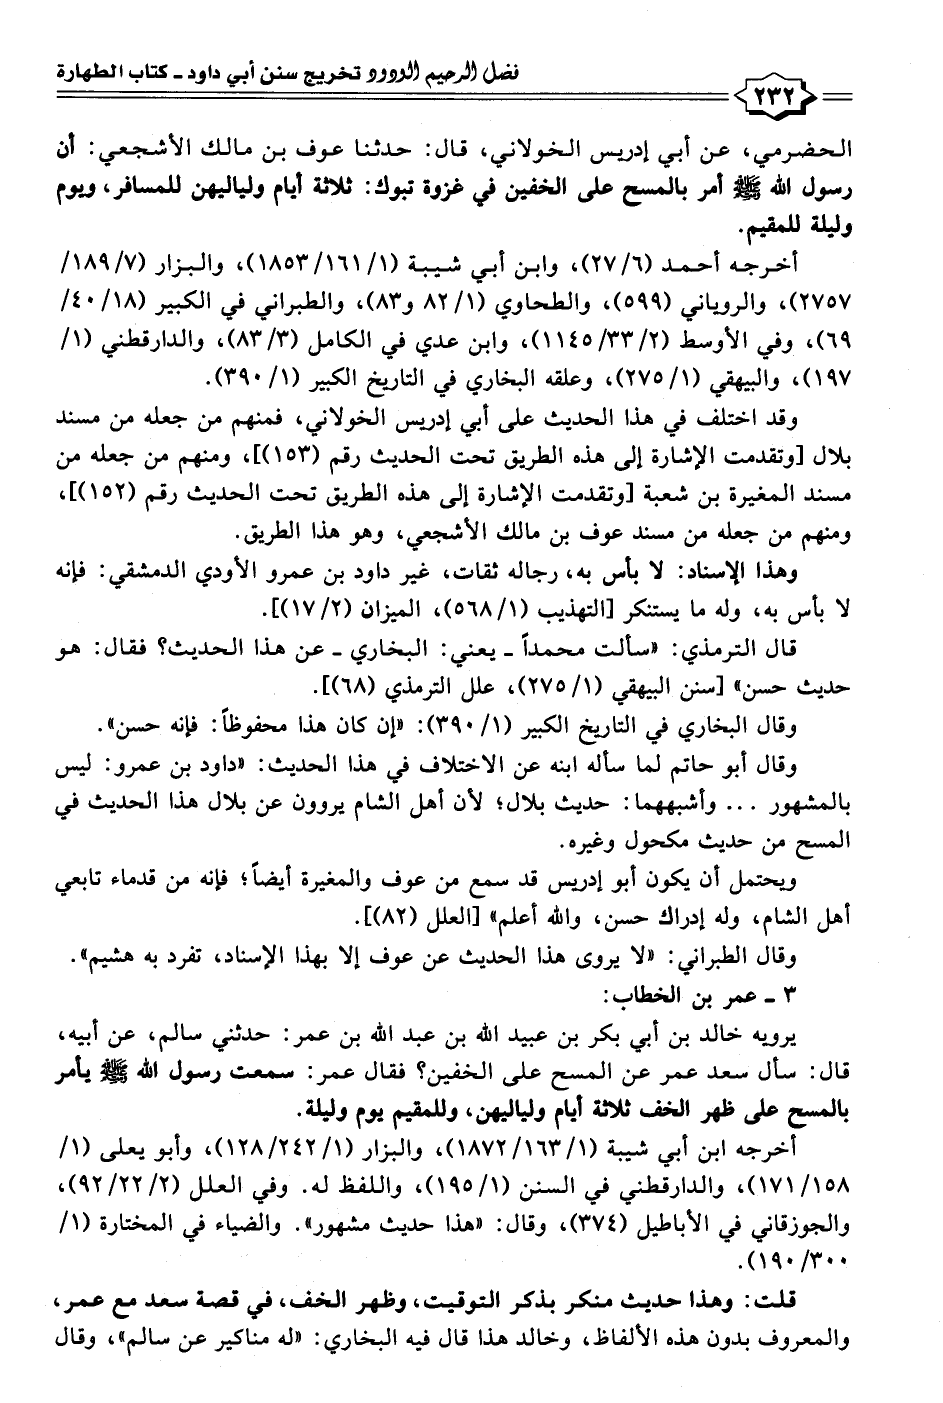 فضل الرحيم الودود تخريج سنن أبي داود ـ كتاب الطهارة
٢٣٢
الحضرمي، عن أبي إدريس الخولاني، قال: حدثنا عوف بن مالك الأشجعي: أن
رسول الله ﷺ أمر بالمسح على الخفين في غزوة تبوك: ثلاثة أيام ولياليهن للمسافر، ويوم
وليلة للمقيم.
أخرجه أحمد (٦/ ٢٧)، وابن أبي شيبة (١/ ١٦١/ ١٨٥٣)، والبزار (٧/ ١٨٩/
٢٧٥٧)، والروياني (٥٩٩)، والطحاوي (١/ ٨٢ و٨٣)، والطبراني في الكبير (١٨/ ٤٠/
٦٩)، وفي الأوسط (٢/ ٣٣/ ١١٤٥)، وابن عدي في الكامل (٣/ ٨٣)، والدارقطني (١/
١٩٧)، والبيهقي (١/ ٢٧٥)، وعلقه البخاري في التاريخ الكبير (١/ ٣٩٠).
وقد اختلف في هذا الحديث على أبي إدريس الخولاني، فمنهم من جعله من مسند
بلال [وتقدمت الإشارة إلى هذه الطريق تحت الحديث رقم (١٥٣)]، ومنهم من جعله من
مسند المغيرة بن شعبة [وتقدمت الإشارة إلى هذه الطريق تحت الحديث رقم (١٥٢)]،
ومنهم من جعله من مسند عوف بن مالك الأشجعي، وهو هذا الطريق.
وهذا الإسناد: لا بأس به، رجاله ثقات، غير داود بن عمرو الأودي الدمشقي: فإنه
لا بأس به، وله ما يستنكر [التهذيب (١/ ٥٦٨)، الميزان (٢/ ١٧)].
قال الترمذي: «سألت محمداً ـ يعني: البخاري ـ عن هذا الحديث؟ فقال: هو
حديث حسن» [سنن البيهقي (١/ ٢٧٥)، علل الترمذي (٦٨)].
وقال البخاري في التاريخ الكبير (١/ ٣٩٠): «إن كان هذا محفوظاً: فإنه حسن».
وقال أبو حاتم لما سأله ابنه عن الاختلاف في هذا الحديث: «داود بن عمرو: ليس
بالمشهور ... وأشبههما: حديث بلال؛ لأن أهل الشام يروون عن بلال هذا الحديث في
المسح من حديث مكحول وغيره.
ويحتمل أن يكون أبو إدريس قد سمع من عوف والمغيرة أيضاً؛ فإنه من قدماء تابعي
أهل الشام، وله إدراك حسن، والله أعلم» [العلل (٨٢)].
وقال الطبراني: «لا يروى هذا الحديث عن عوف إلا بهذا الإسناد، تفرد به هشيم».
٣ ـ عمر بن الخطاب:
يرويه خالد بن أبي بكر بن عبيد الله بن عبد الله بن عمر: حدثني سالم، عن أبيه،
قال: سأل سعد عمر عن المسح على الخفين؟ فقال عمر: سمعت رسول الله ﷺ يأمر
بالمسح على ظهر الخف ثلاثة أيام ولياليهن، وللمقيم يوم وليلة.
أخرجه ابن أبي شيبة (١/ ١٦٣/ ١٨٧٢)، والبزار (١/ ٢٤٢/ ١٢٨)، وأبو يعلى (١/
١٥٨/ ١٧١)، والدارقطني في السنن (١/ ١٩٥)، واللفظ له. وفي العلل (٢/ ٢٢/ ٩٢)،
والجوزقاني في الأباطيل (٣٧٤)، وقال: «هذا حديث مشهور». والضياء في المختارة (١/
٣٠٠/ ١٩٠).
قلت: وهذا حديث منكر بذكر التوقيت، وظهر الخف، في قصة سعد مع عمر،
والمعروف بدون هذه الألفاظ، وخالد هذا قال فيه البخاري: «له مناكير عن سالم»، وقال